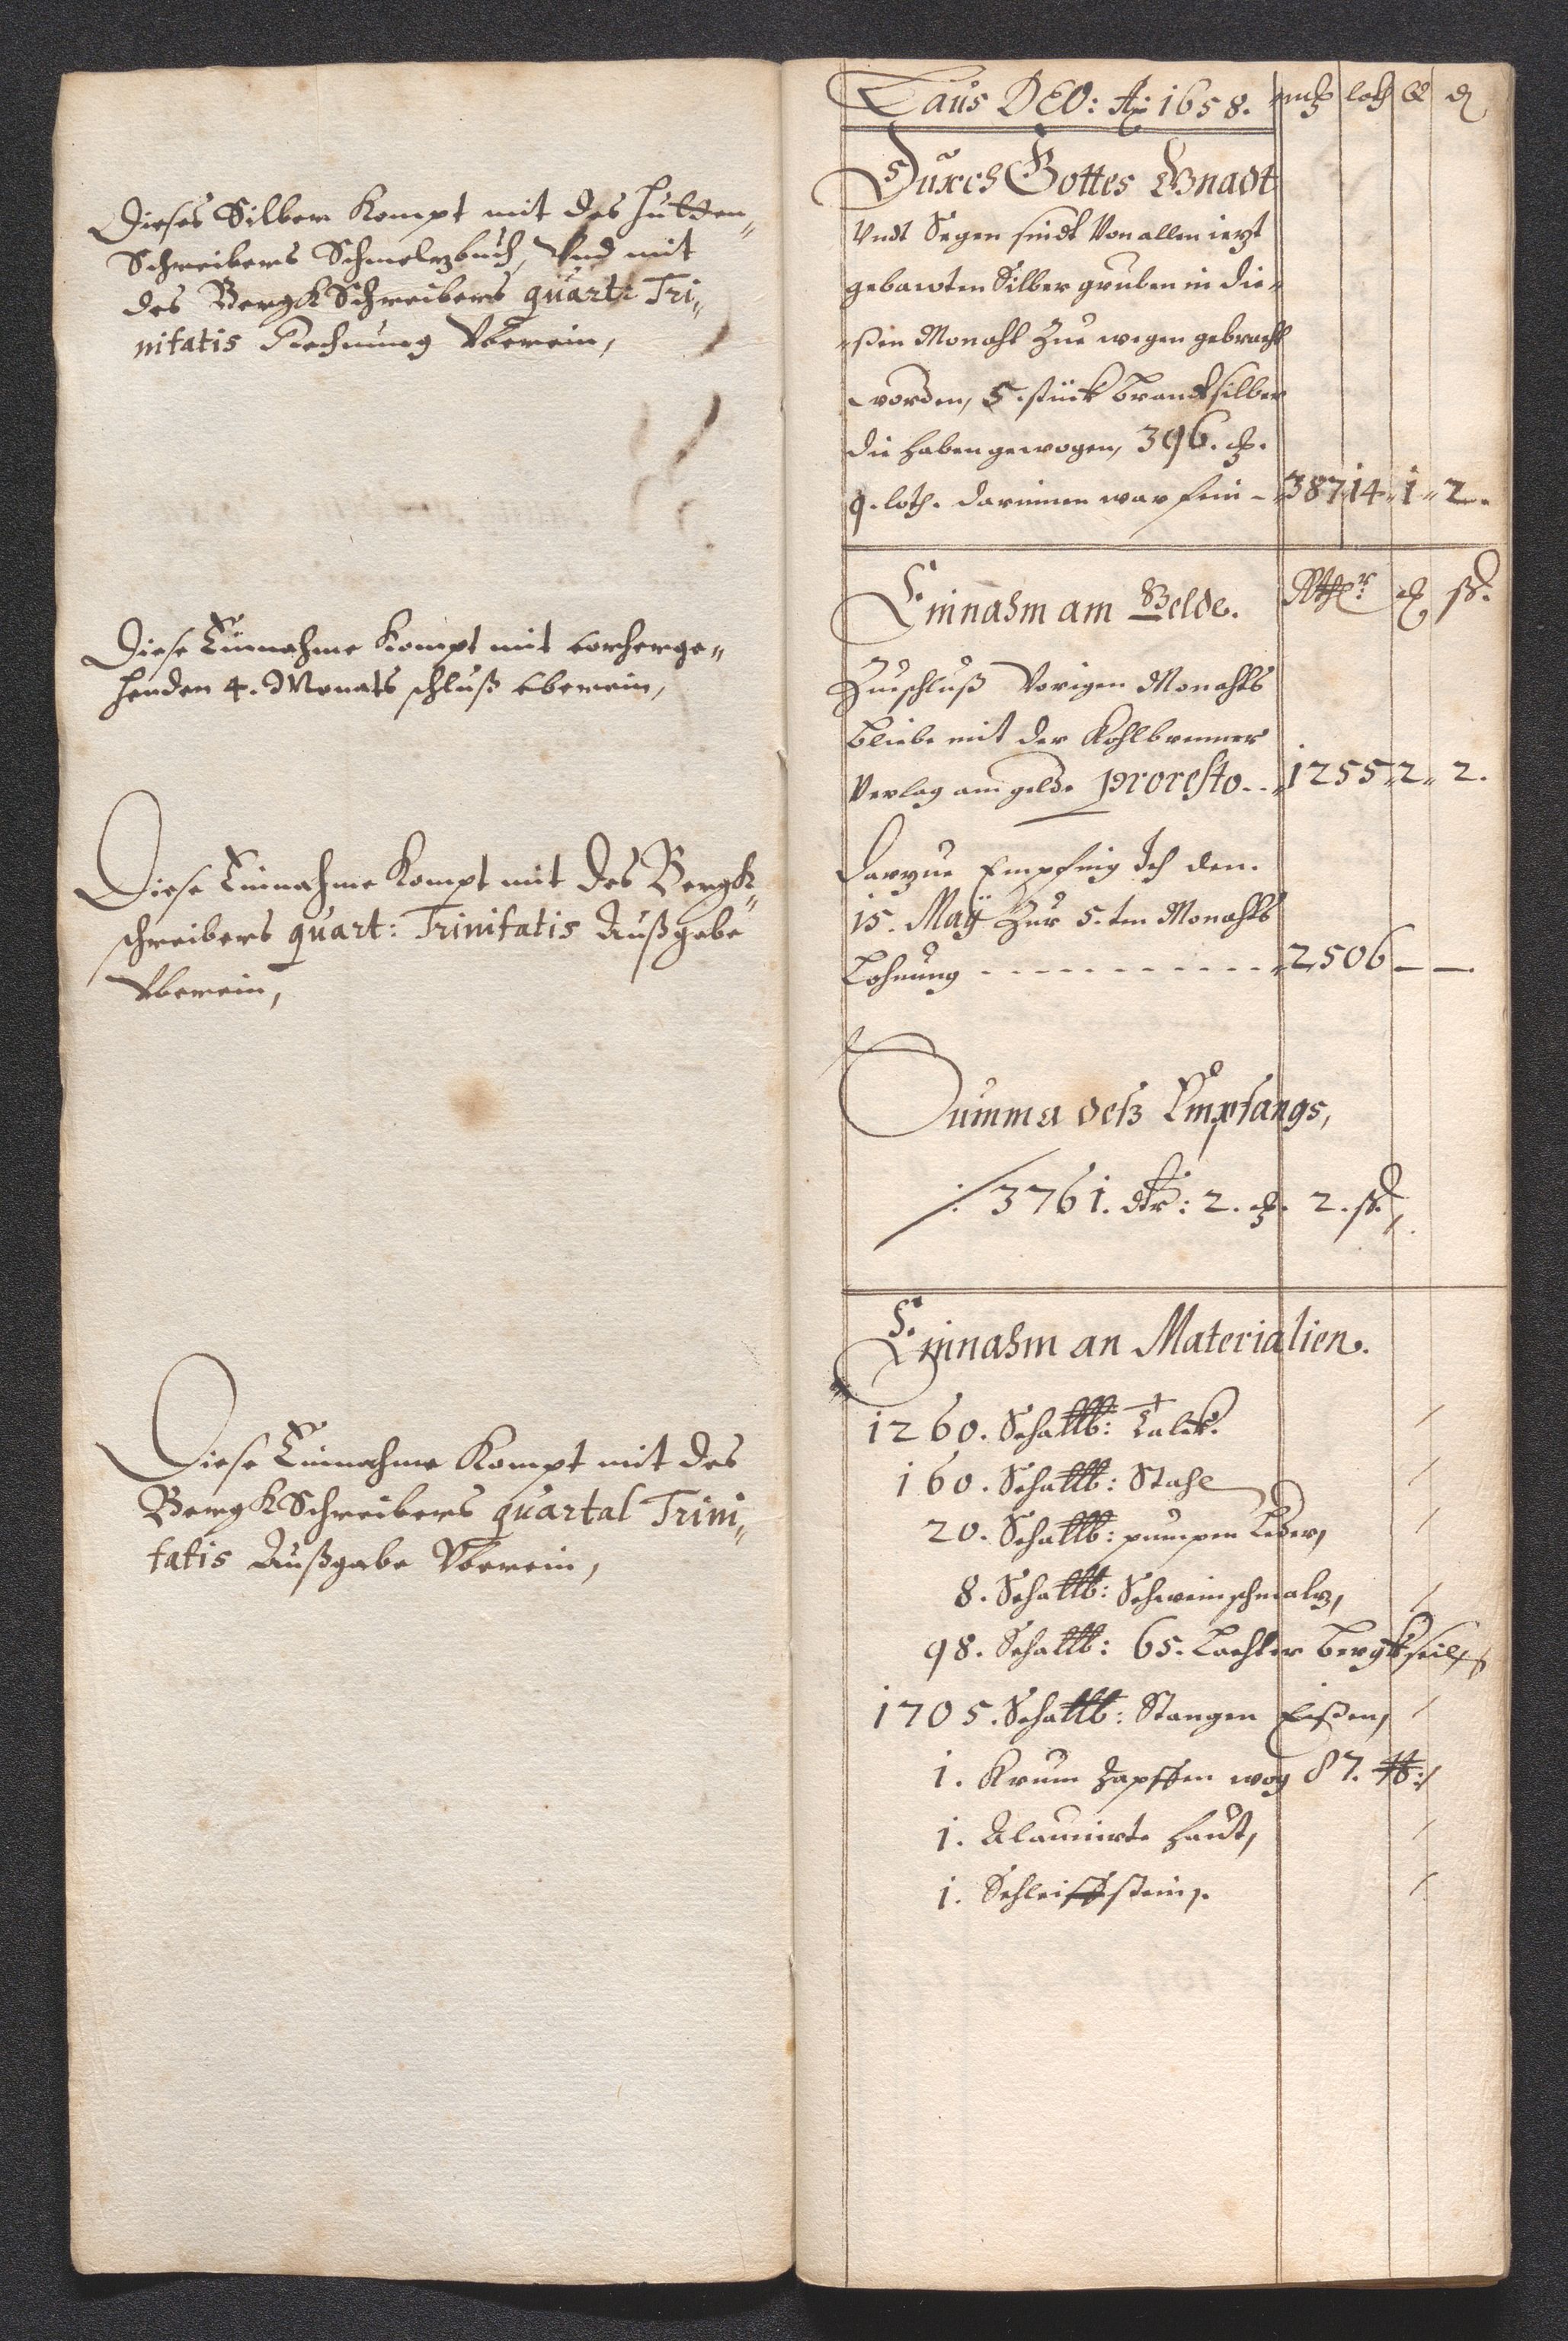 Dieses Silber Kompt mit des hutten„
Schreibers Schmeltzbuch, Vnd mit
des BergkSchreibers quart: Tri„
nitatis Rechnung Vberein,
Diese Einnahme Kompt mit vorherge„
henden 4. Monats schluß vberein,
Diese Einnahme Kompt mit des Bergk„
schreibers quart: Trinitatis Außgabe
Vberein,
Diese Einnahme Kompt mit des
BergkSchreibers quartal Trini„
tatis Außgabe Vberein,
Laus DEO: Aō 1658. mk loth q ₰
Durch Gottes Gnadt
Vndt Segen sindt Von allen ietzt
gebawten Silber gruben in die„
„ßen Monaht Zue wegen gebracht
worden, 5. stück brandtsilber
die haben gewogen, 396. mk.
9. loth. darinnen war fein - „387„14„1„2„
Einnahm am Gelde. Rthlr: mk ß.
Zueschluß Vorigen Monahts
bliebe mit der Kohlbrenner
Verlag am gelde proresto.. „1255„2„2.
Darzue Empfing Ich den.
15. Maÿ Zur 5.ten Monahts
Lohnung - - - - - - - - - - „2506 — —
Summa deß Empfangs,
/: 3761. dlr: 2. mk. 2. ß,
Einnahm an Materialien.
1260. Schallb: Talck.
160. Schallb: Stahl
20. Schallb: pumpen Leder,
8. Schallb: Schweinschmaltz,
98. Schallb: 65. Lachter bergkseil,
1705. Schallb: Stangen Eißen,
1. Krum Zapffen wog 87. lb:/
1. Alaunirte haut,
1. Schleiffstein,.